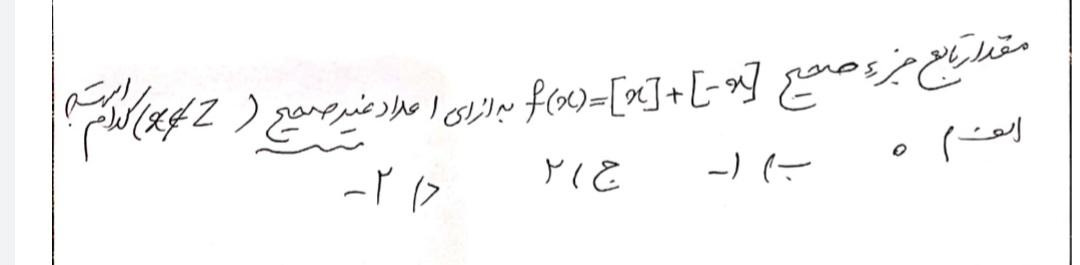 مقدار تابع جزء صحیح f(x)=[x]+[-x] به ازای اعداد غیر صحیح (x∉Z) کدام است؟
الف) ۰ ب) -۱ ج) ۲ د) -۲